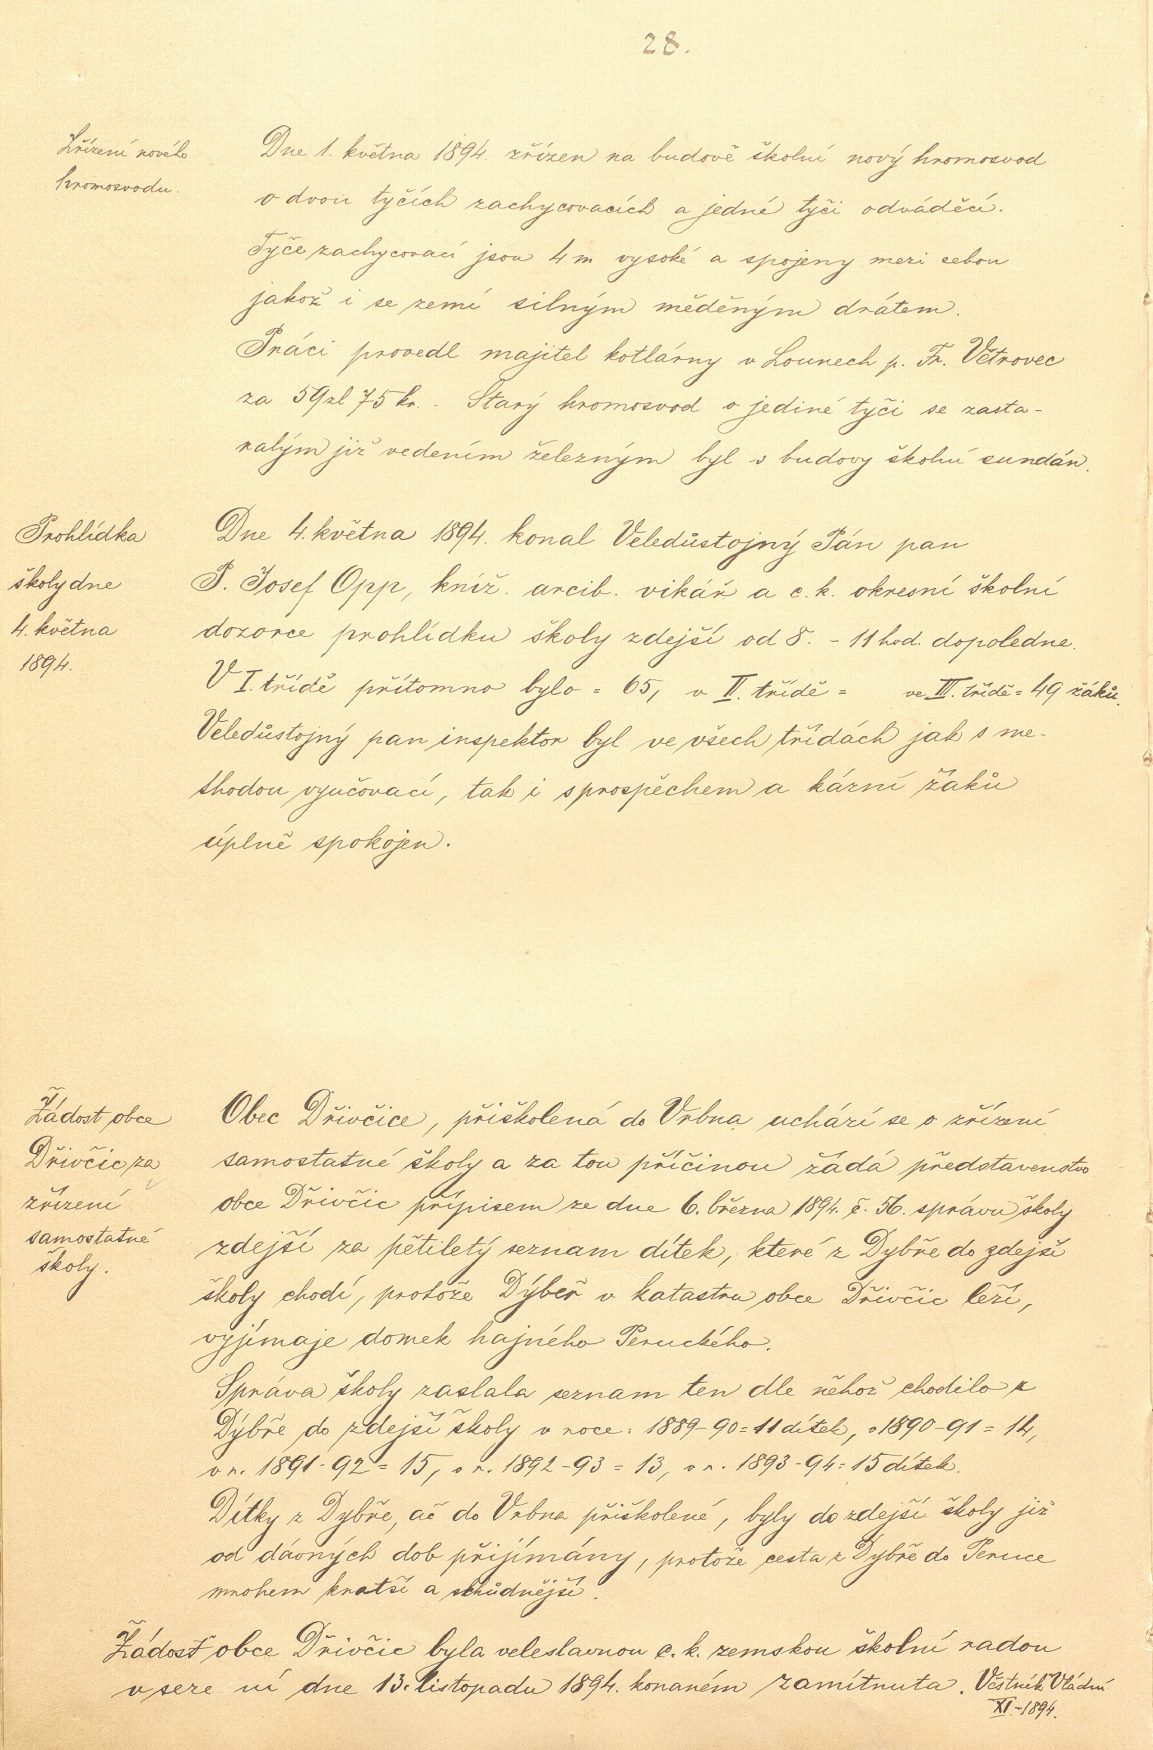 28.
Zřízení nového
hromosvodu.
Dne 1. května 1894. zřízen na budově školní nový hromosvod
o dvou tyčích zachycovacích a jedné tyči odváděcí.
Tyče zachycovací jsou 4 m vysoké a spojeny mezi sebou
jakož i se zemí silným měděným drátem.
Práci provedl majitel kotlárny v Lounech p. Fr. Větrovec
za 59 zl 75 kr. Starý hromosvod o jediné tyči se zasta-
ralým již vedením železným byl s budovy školní sundán.
Prohlídka
školy dne
4. května
1894.
Dne 4. května 1894. konal Veledůstojný Pán pan
P. Josef Opp, kníž. arcib. vikář a c. k. okresní školní
dozorce prohlídku školy zdejší od 8. - 11 hod. dopoledne.
V I. třídě přítomno bylo = 65, v II. třídě = ve III. třídě = 49 žáků.
Veledůstojný pan inspektor byl ve všech třídách jak s me-
thodou vyučovací, tak i s prospěchem a kázní žáků
úplně spokojen.
Žádost obce
Dřivčic za
zřízení
samostatné
školy.
Obec Dřivčice, přiškolená do Vrbna uchází se o zřízení
samostatné školy a za tou příčinou žádá představenstvo
obce Dřivčic přípisem ze dne 6. března 1894. č. 56. správu školy
zdejší za pětiletý seznam dítek, které z Dybře do zdejší
školy chodí, protože Dýbeř v katastru obce Dřivčic leží,
vyjímaje domek hajného Peruckého.
Správa školy zaslala seznam ten dle něhož chodilo z
Dýbře do zdejší školy v roce: 1889-90 = 11 dítek, v 1890-91 = 14,
v r. 1891-92 = 15, v r. 1892-93 = 13, v r. 1893-94 = 15 dítek.
Dítky z Dybře, ač do Vrbna přiškolené, byly do zdejší školy již
od dávných dob přijímány, protože cesta z Dybře do Peruce
mnohem kratší a schůdnější.
Žádosť obce Dřivčic byla veleslavnou c. k. zemskou školní radou
v seze ní dne 13. listopadu 1894. konaném zamítnuta. Věstník Vládní
XI.-1894.